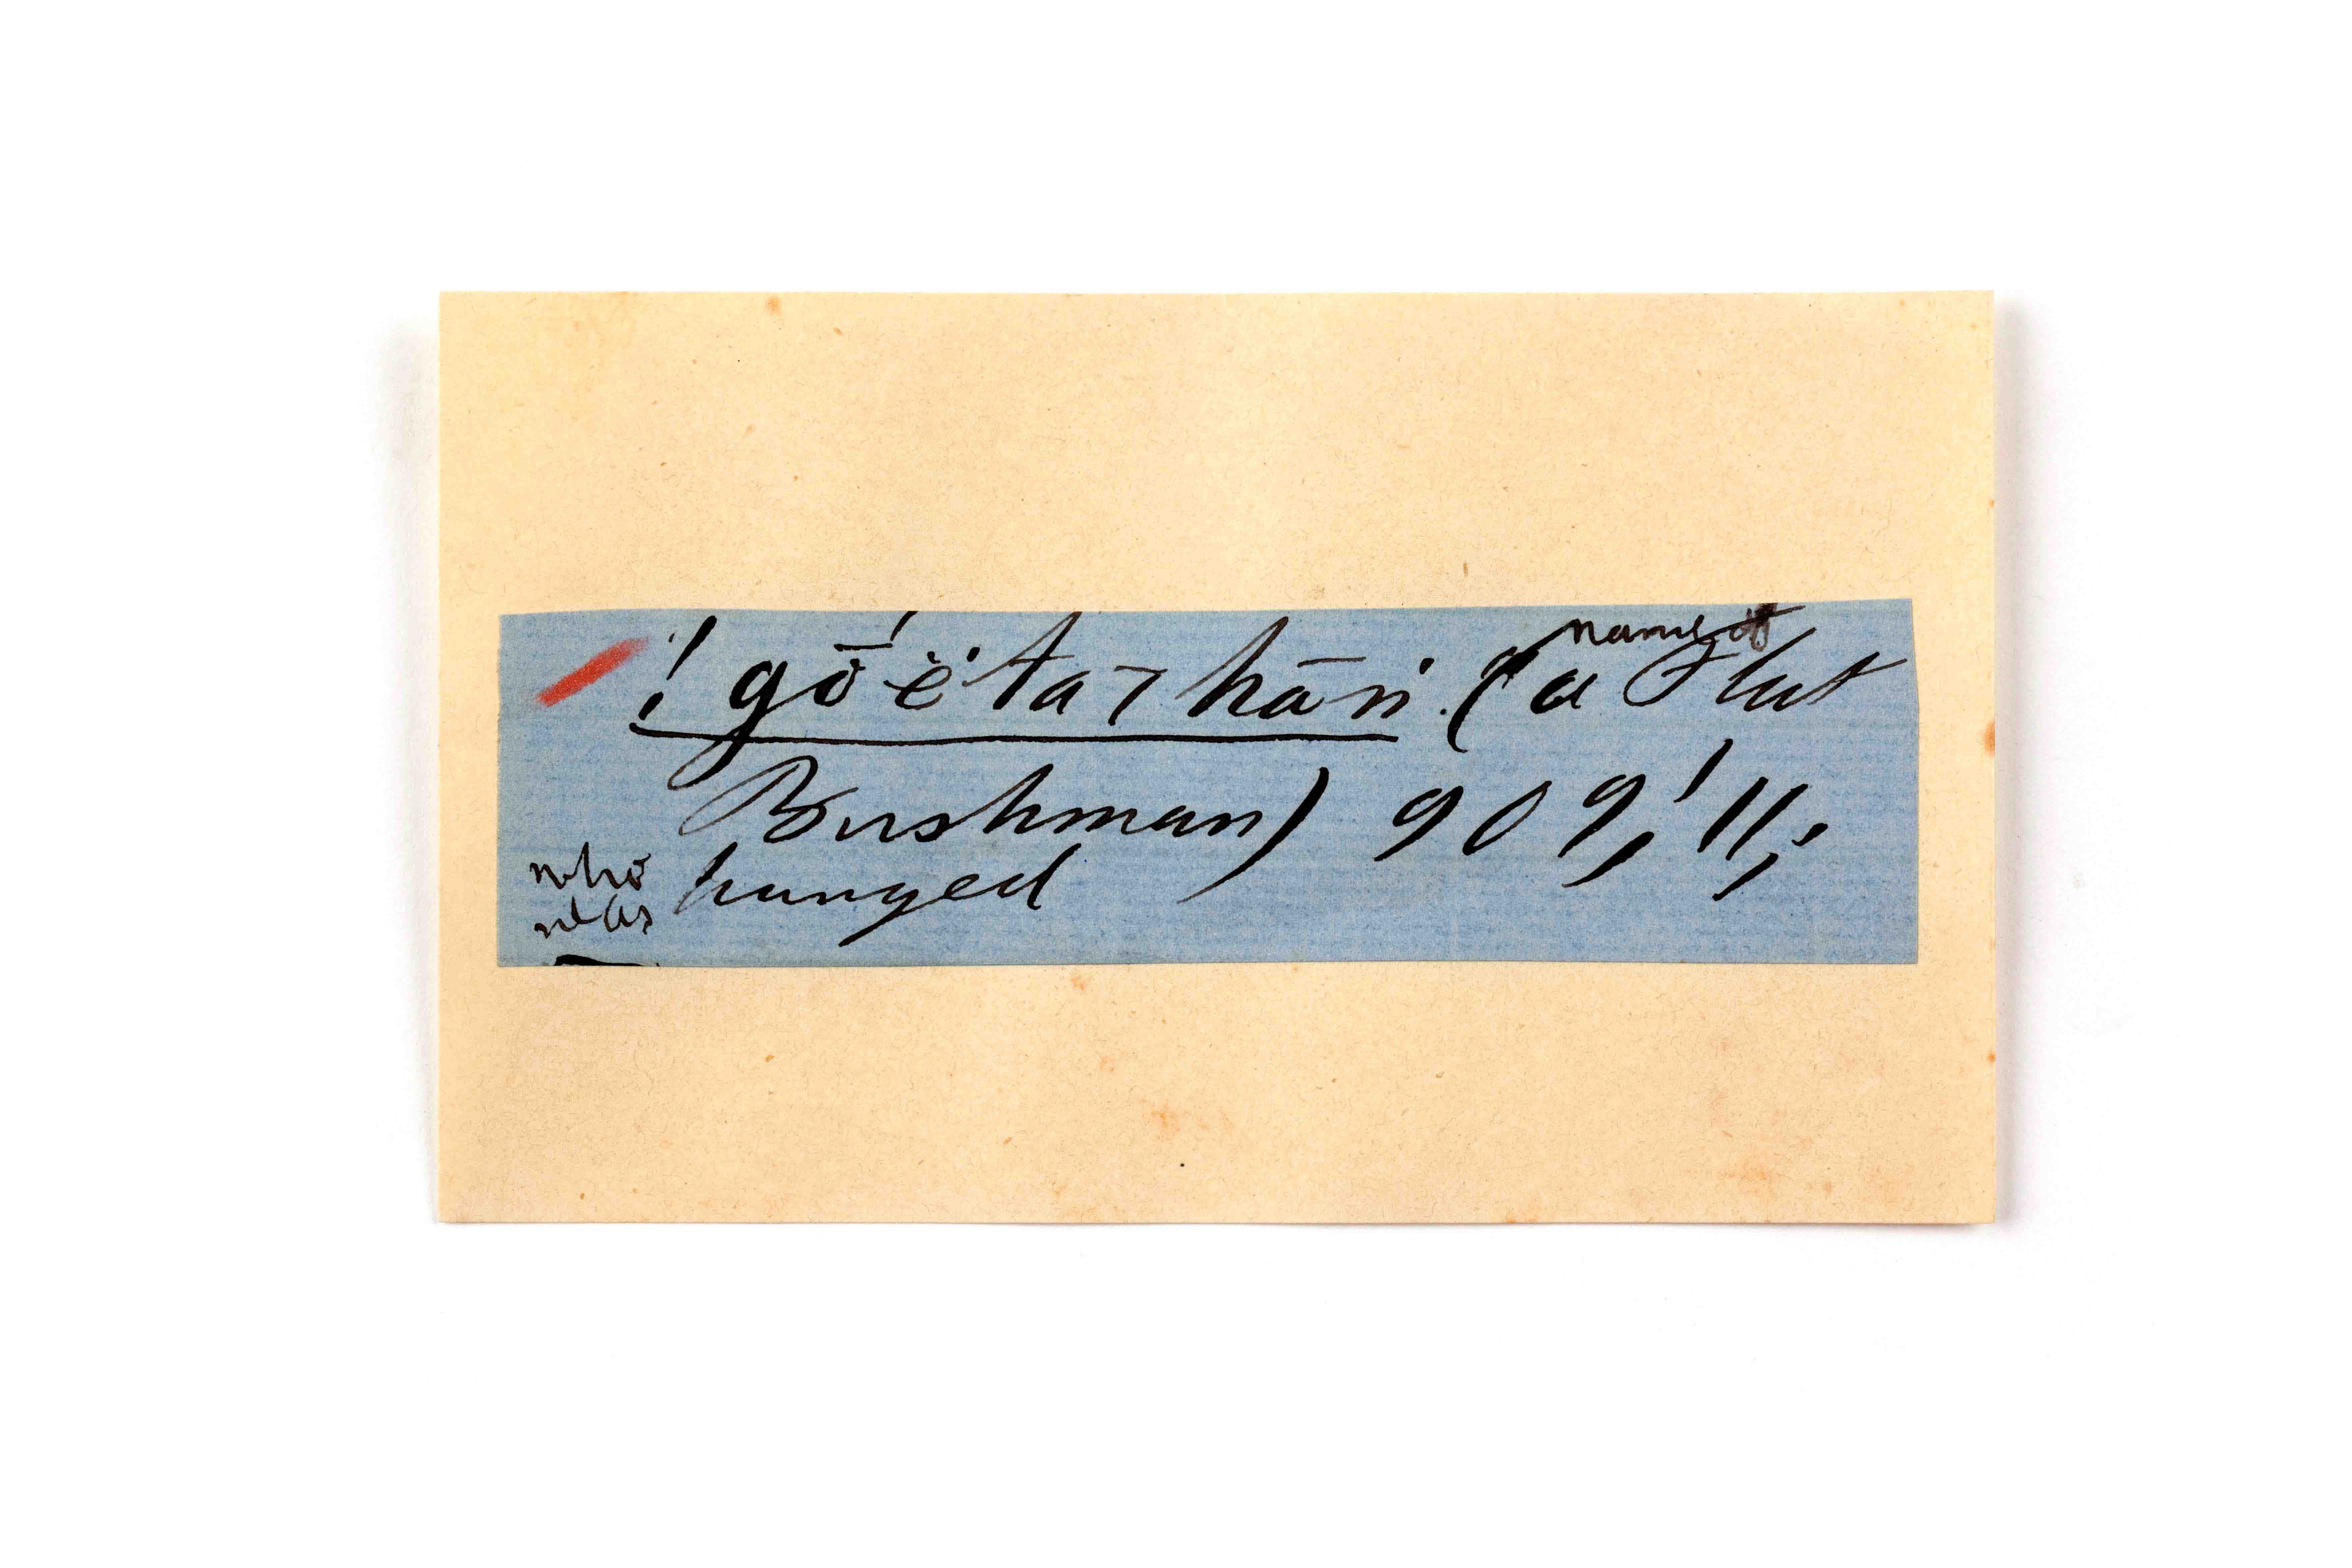 name of
! gō´ĕ ta-hān. (a Flat
Bushman) 909,' 11,;
who hanged
was